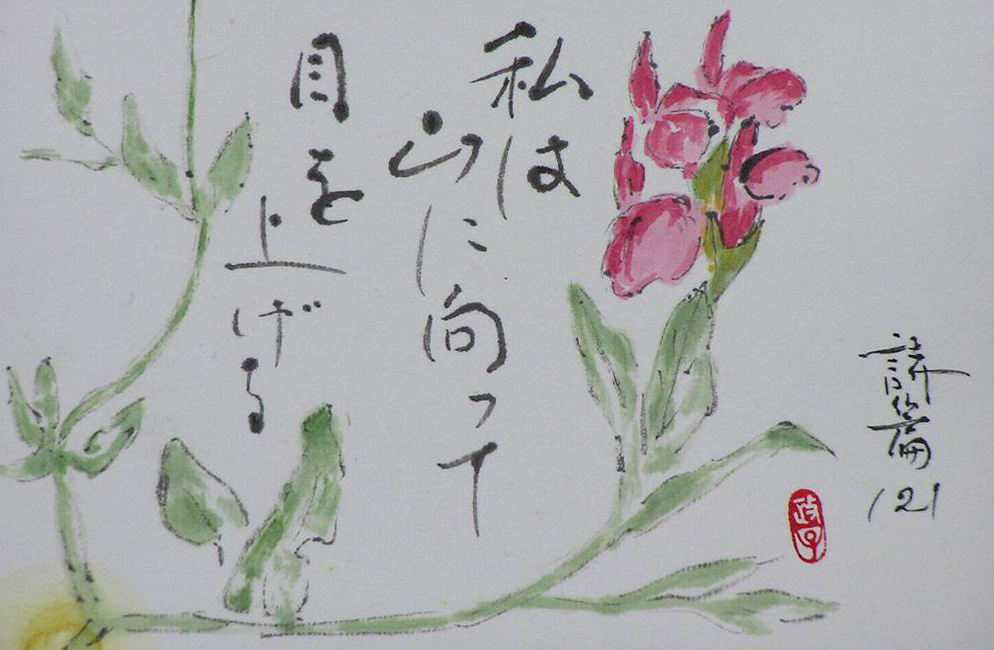 私は
山に向って
目を
上げる
詩篇
121
政子